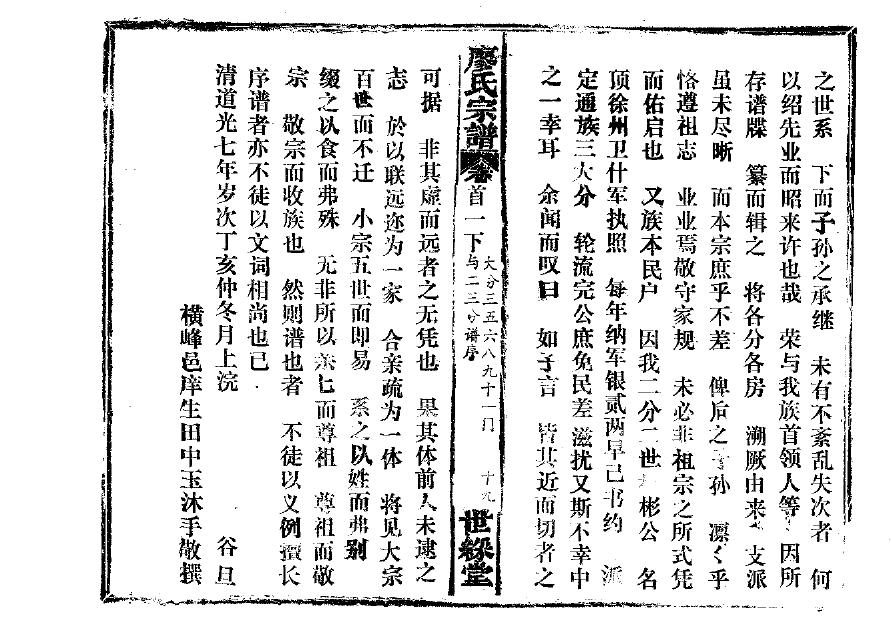 之世系 下而子孙之承继 未有不紊乱失次者 何
以绍先业而昭来许也哉 荣与我族首领人等 因所
存谱牒 纂而辑之 将各分各房 溯厥由来 支派
虽未尽晰 而本宗庶乎不差 俾后之子孙 凛〻乎
恪遵祖志 业业焉敬守家规 未必非祖宗之所式凭
而佑启也 又族本民户 因我二分二世 彬公 名
顶徐州卫什军执照 每年纳军银贰两早已书约 派
定通族三大分 轮流完公庶免民差 滋扰又斯不幸中
之一幸耳 余闻而叹曰 如子言 皆其近而切者之
廖氏宗谱 卷首一下 大分三五六八九十一门与二三分谱序 十九 世綵堂
可据 非其虚而远者之无凭也 果其体前人未逮之
志 於以联远迩为一家 合亲疏为一体 将见大宗
百世而不迁 小宗五世而即易 系之以姓而弗别
缀之以食而弗殊 无非所以亲亡而尊祖 尊祖而敬
宗 敬宗而收族也 然则谱也者 不徒以义例擅长
序谱者亦不徒以文词相尚也已
清道光七年岁次丁亥仲冬月上浣 谷旦
横峰邑庠生田中玉沐手敬撰